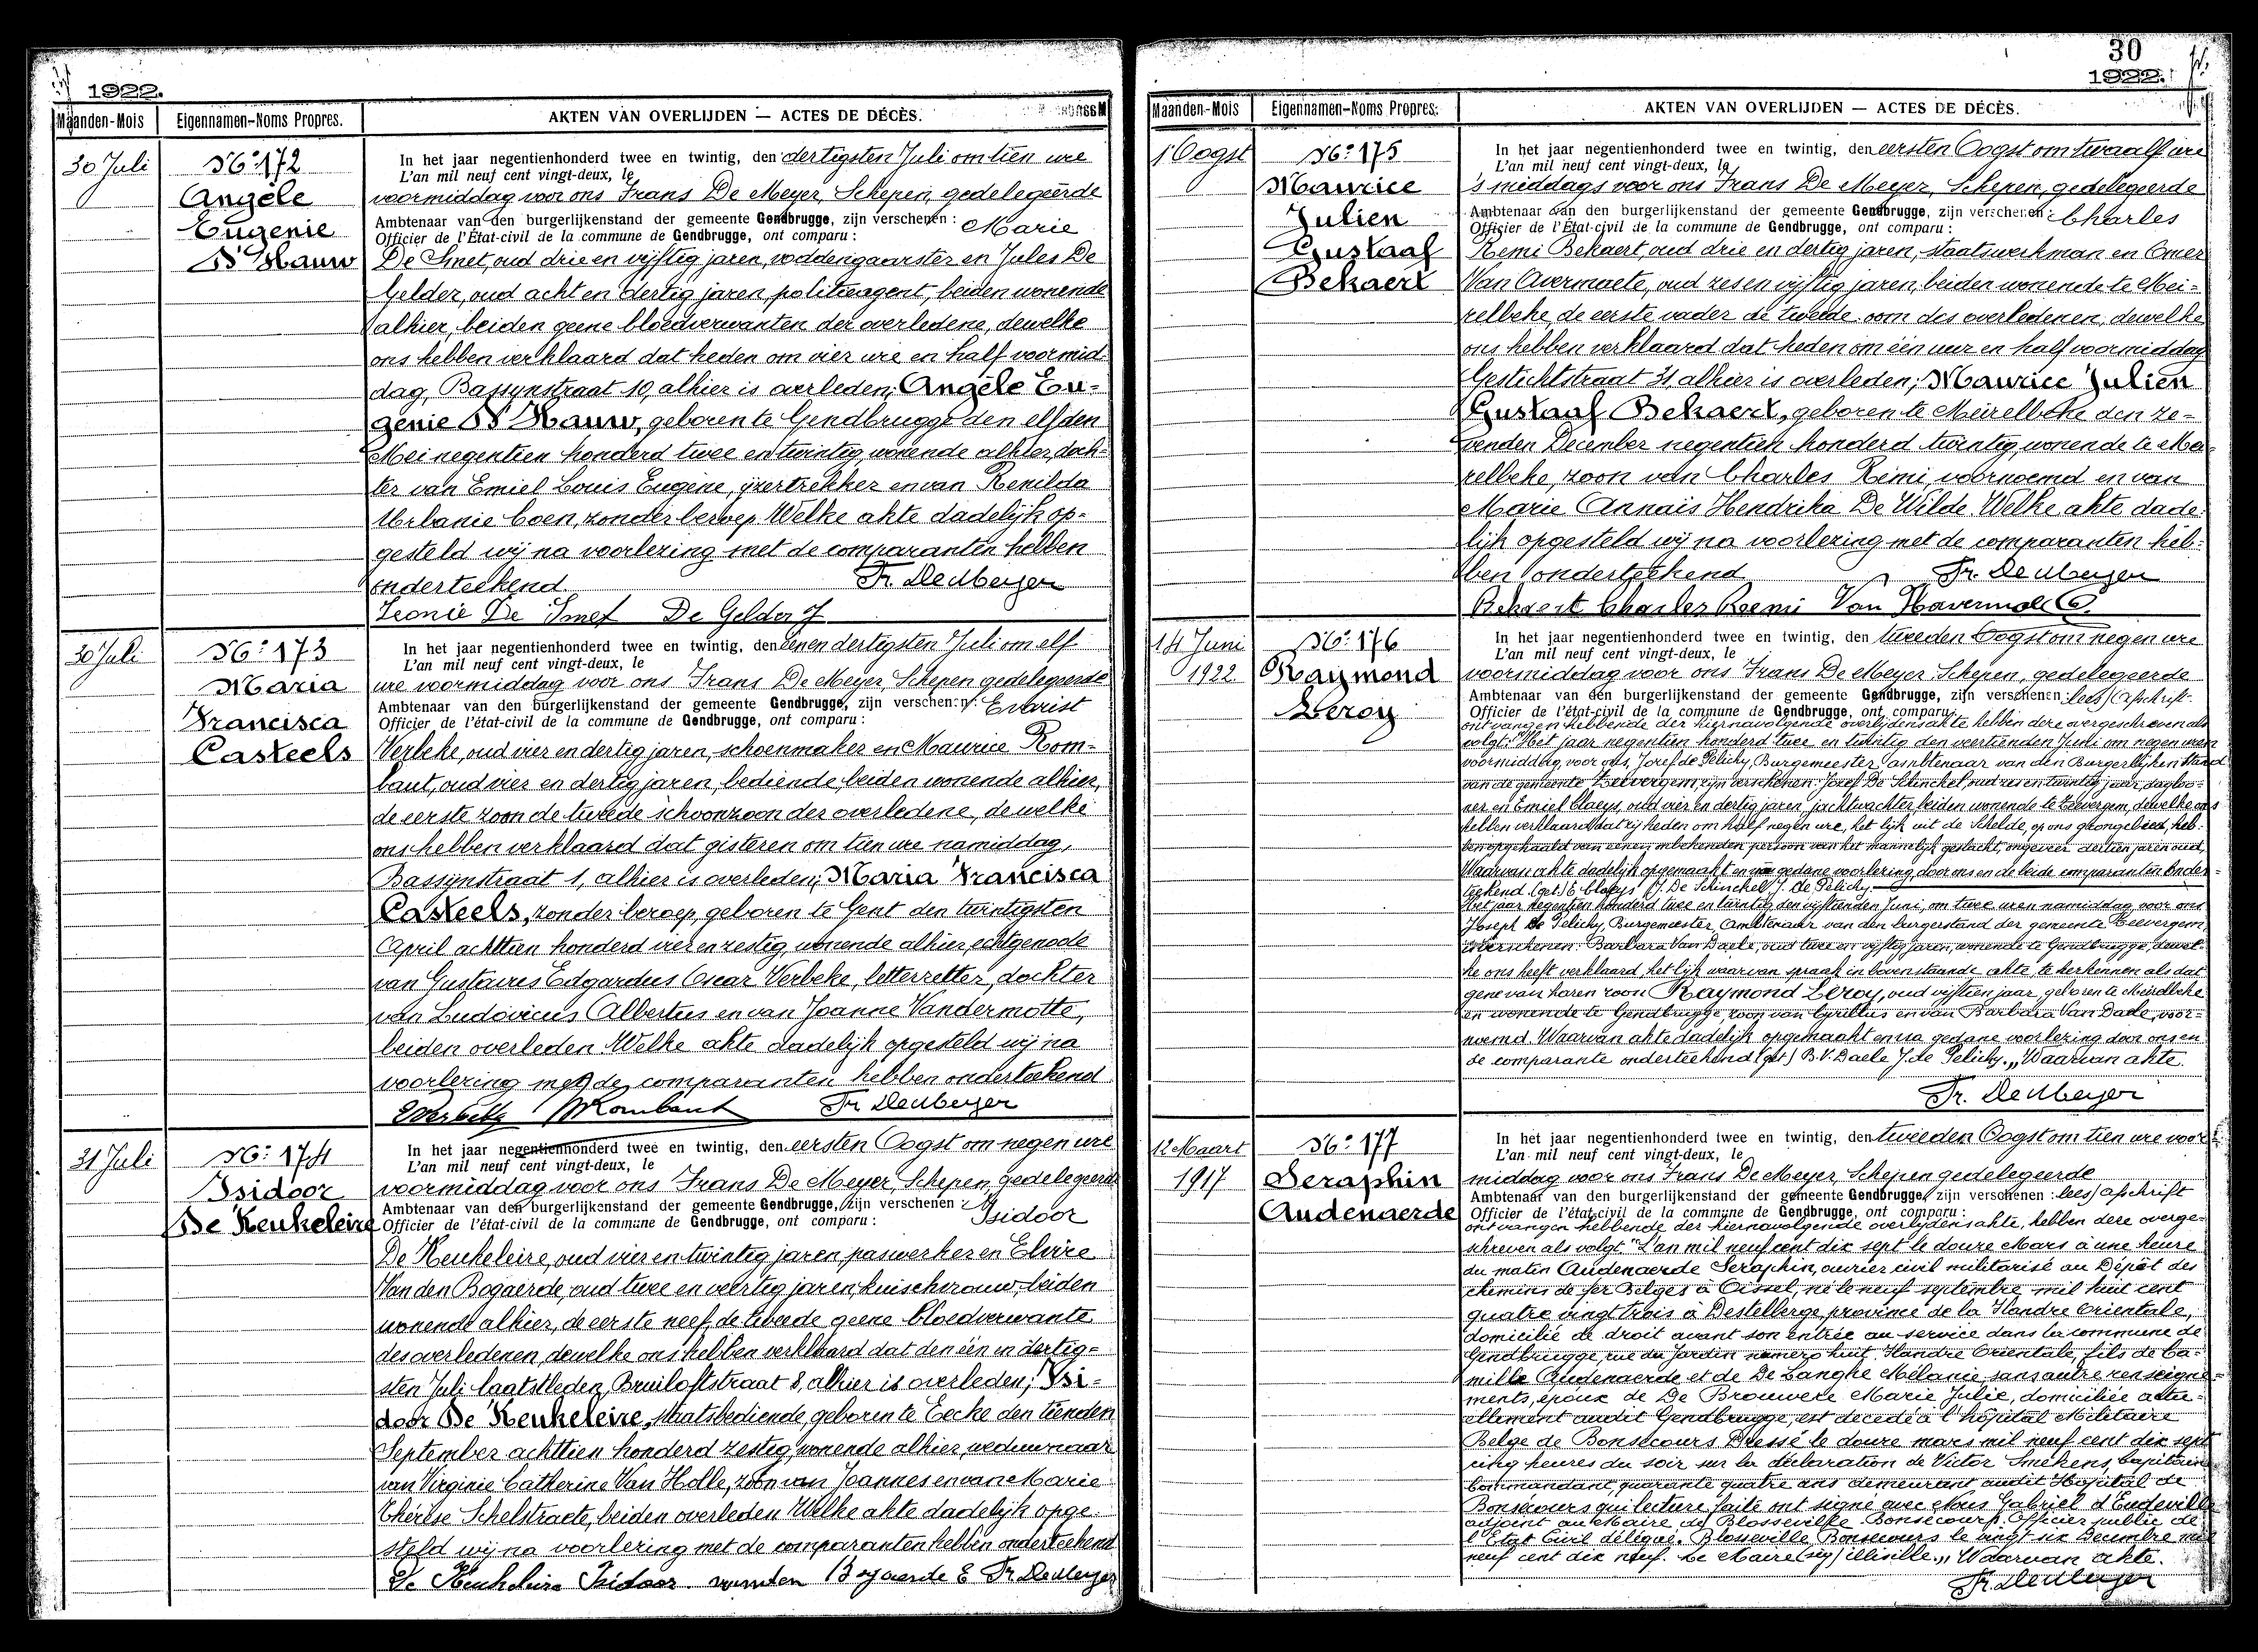 1922.
Maanden-Mois
Eigennamen-Noms Propres.
AKTEN VAN OVERLIJDEN — ACTES DE DÉCÈS.
30 Juli
No: 172
Angèle
Eugenie
D'Hauw
In het jaar negentienhonderd twee en twintig, den dertigsten Juli om tien ure
L'an mil neuf cent vingt-deux, le
voormiddag voor ons Frans De Meyer, Schepen, gedelegeerde
Ambtenaar van den burgerlijkenstand der gemeente Gendbrugge, zijn verschenen: Marie
Officier de l'État-civil de la commune de Gendbrugge, ont comparu:
De Smet, oud drie en vijftig jaren, voddengaarster en Jules De
Gelder, oud acht en dertig jaren politieagent, beiden wonende
alhier, beiden geene bloedverwanten der overledene, dewelke
ons hebben verklaard dat heden om vier ure en half voormid-
dag, Bassynstraat 10, alhier is overleden; Angèle Eu-
genie D'Hauw, geboren te Gendbrugge den elfden
Mei negentien honderd twee en twintig, wonende alhier, doch-
ter van Emiel Louis Eugène, ijzertrekker en van Renilda
Urbanie Coen, zonder beroep Welke akte dadelijk op-
gesteld wij na voorlezing met de comparanten hebben
onderteekend. Fr. De Meyer
Leonie De Smet De Gelder J
30 Juli
No: 173
Maria
Francisca
Casteels
In het jaar negentienhonderd twee en twintig, den éénen dertigsten Juli om elf
L'an mil neuf cent vingt-deux, le
ure voormiddag voor ons Frans De Meyer, Schepen gedelegeerde
Ambtenaar van den burgerlijkenstand der gemeente Gendbrugge, zijn verschenen: Evarist
Officier de l'état-civil de la commune de Gendbrugge, ont comparu:
Verbeke, oud vier en dertig jaren, schoenmaker en Maurice Rom-
baut, oud vier en dertig jaren, bediende, beiden wonende alhier,
de eerste zoon de tweede schoonzoon der overledene, dewelke
ons hebben verklaard dat gisteren om tien ure namiddag,
Bassijnstraat 1, alhier is overleden; Maria Francisca
Casteels, zonder beroep, geboren te Gent den twintigsten
April achttien honderd vier en zestig, wonende alhier, echtgenoote
van Gustavus Edgardus Oscar Verbeke, letterzetter, dochter
van Ludovicus Albertus en van Joanne Vandermotte,
beiden overleden. Welke akte dadelijk opgesteld wij na
voorlezing met de comparanten hebben onderteekend
EVerbeke MRombaut Fr. De Meyer
31 Juli
No: 174
Isidoor
De Keukeleire
In het jaar negentienhonderd twee en twintig, den eersten Oogst om negen ure
L'an mil neuf cent vingt-deux, le
voormiddag voor ons Frans De Meyer, Schepen, gedelegeerde
Ambtenaar van den burgerlijkenstand der gemeente Gendbrugge, zijn verschenen: Isidoor
Officier de l'état-civil de la commune de Gendbrugge, ont comparu:
De Keukeleire, oud vier en twintig jaren, paswerker en Elvire
Van den Bogaerde, oud twee en veertig jaren, kuischvrouw, beiden
wonende alhier, de eerste neef, de tweede geene bloedverwante
des overledenen, dewelke ons hebben verklaard dat den één en dertig-
sten Juli laatstleden, Bruiloftstraat 8, alhier is overleden; Isi-
door De Keukeleire, staatsbediende, geboren te Eecke den tienden
September achttien honderd zestig, wonende alhier, weduwnaar
van Virginie Catherine Van Holle, zoon van Joannes en van Marie
Thérèse Schelstraete, beiden overleden Welke akte dadelijk opge-
steld wij na voorlezing met de comparanten hebben onderteekend
De Keukeleire Isidoor. Bogaerde E Fr. De Meyer
30
1922.
Maanden-Mois
Eigennamen-Noms Propres.
AKTEN VAN OVERLIJDEN — ACTES DE DÉCÈS.
1 Oogst
No: 175
Maurice
Julien
Gustaaf
Bekaert
In het jaar negentienhonderd twee en twintig, den eersten Oogst om twaalf ure
L'an mil neuf cent vingt-deux, le
's middags voor ons Frans De Meyer, Schepen, gedelegeerde
Ambtenaar van den burgerlijkenstand der gemeente Gendbrugge, zijn verschenen: Charles
Officier de l'État-civil de la commune de Gendbrugge, ont comparu:
Remi Bekaert, oud drie en dertig jaren, staatswerkman en Omer
Van Avermaete, oud zes en vijftig jaren, beiden wonende te Mei-
relbeke, de eerste vader de tweede oom des overledenen, dewelke
ons hebben verklaard dat heden om één uur en half voormiddag
Gestichtstraat 31, alhier is overleden; Maurice Julien
Gustaaf Bekaert, geboren te Meirelbeke den ze-
venden December negentien honderd twintig, wonende te Mei-
relbeke, zoon van Charles Remi, voornoemd en van
Marie Annais Hendrika De Wilde. Welke akte dade-
lijk opgesteld wij na voorlezing met de comparanten heb-
ben onderteekend Fr. De Meyer
Bekaert Charles Remi Van Havermaet O.
14 Juni
1922
No: 176
Raymond
Leroy
In het jaar negentienhonderd twee en twintig, den tweeden Oogst om negen ure
L'an mil neuf cent vingt-deux, le
voormiddag voor ons Frans De Meyer Schepen, gedelegeerde
Ambtenaar van den burgerlijkenstand der gemeente Gendbrugge, zijn verschenen: lees/ afschrift
Officier de l'état-civil de la commune de Gendbrugge, ont comparu:
ontvangen hebbende der hiernavolgende overlijdensakte hebben deze overgeschreven als
volgt: "Het jaar negentien honderd twee en twintig den veertienden Juni om negen uren
voormiddag, voor ons, Jozef de Pelichy, Burgemeester Ambtenaar van den Burgerlijken Stand
van de gemeente Zeevergem, zijn verschenen: Jozef De Schinckel, oud zes en twintig jaar, dagloo-
ner en Emiel Claeys, oud vier en dertig jaren, jachtwachter, beiden wonende te Zeevergem, dewelke ons
hebben verklaard dat zij heden om half negen ure, het lijk uit de Schelde, op ons grondgebied, heb-
ben opgehaald van eenen onbekenden persoon van het mannelijk geslacht, ongeveer dertien jaren oud,
Waarvan akte dadelijk opgemaakt en na gedane voorlezing door ons en de beide comparanten onder-
teekend (get) E Claeys J. De Schinckel J. de Pelichy.
Het jaar negentien honderd twee en twintig den vijftienden Juni, om twee uren namiddag, voor ons
Joseph de Pelichy, Burgemeester, Ambtenaar van den burgerstand der gemeente Zeevergem,
is verschenen: Barbara Van Daele, oud twee en vijftig jaren, wonende te Gendbrugge, dewel-
ke ons heeft verklaard, het lijk waarvan spraak in bovenstaande akte, te herkennen als dat
gene van haren zoon Raymond Leroy, oud vijftien jaar, geboren te Meirelbeke
en wonende te Gendbrugge, zoon van Cyrillus en van Barbara Van Daele, voor-
noemd. Waarvan akte dadelijk opgemaakt en na gedane voorlezing door ons en
de comparante onderteekend (get) B. V. Daele J. de Pelichy.„ Waarvan akte.
Fr. De Meyer
12 Maart
1917
No: 177
Seraphin
Audenaerde
In het jaar negentienhonderd twee en twintig, den tweeden Oogst om tien ure voor-
L'an mil neuf cent vingt-deux, le
middag voor ons Frans De Meyer, Schepen gedelegeerde
Ambtenaar van den burgerlijkenstand der gemeente Gendbrugge, zijn verschenen: lees/ afschrift
Officier de l'état-civil de la commune de Gendbrugge, ont comparu:
ontvangen hebbende der hiernavolgende overlijdensakte, hebben deze overge-
schreven als volgt. "L'an mil neuf cent dix sept le douze Mars à une heure
du matin Audenaerde Seraphin, ouvrier civil militarisé au Dépôt des
chemins de fer Belges à Oissel, né le neuf septembre mil huit cent
quatre vingt trois à Destelberge, province de la Flandre Orientale,
domicilié de droit avant son entrée au service dans la commune de
Gendbrugge, rue du Jardin numero huit, Flandre Orientale, fils de Ca-
mille Audenaerde et de De Langhe Mélanie, sans autre renseigne-
ments, époux de De Brouwere Marie Julie, domiciliée actu-
ellement audit Gendbrugge, est decedé à l'hôpital Militaire
Belge de Bonsecours. Dressé le douze mars mil neuf cent dix sept
cinq heures du soir sur la déclaration de Victor Smekens, Capitaine
Commandant, quarante quatre ans demeurant audit Hopital de
Bonsecours qui lecture faite ont signé avec Nous Gabriel d'Eudeville
adjoint au Maire de Blosseville-Bonsecours. Officier public de
l'Etat Civil délégué. Blosseville Bonsecours le vingt six Decembre mil
neuf cent dix neuf. Le Maire (sig) illisible.„ Waarvan akte.
Fr. De Meyer